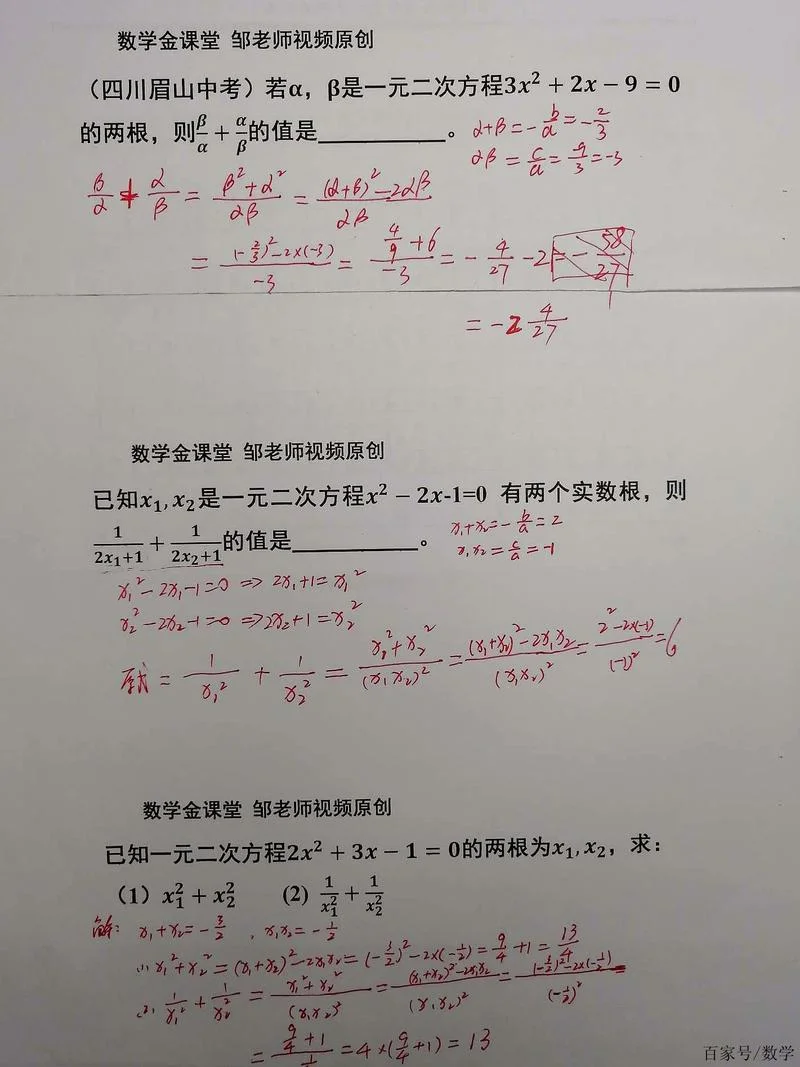 数学金课堂 邹老师视频原创
(四川眉山中考)若α，β是一元二次方程3x²+2x−9=0
的两根，则β/α+α/β的值是__________。
α+β=−b/a=−2/3
αβ=c/a=−9/3=−3
β/α+α/β=(β²+α²)/αβ=((α+β)²−2αβ)/αβ
=((−2/3)²−2×(−3))/−3=(4/9+6)/−3=−4/27−2=−58/27
=−2 4/27
数学金课堂 邹老师视频原创
已知x₁,x₂是一元二次方程x²−2x-1=0 有两个实数根，则
1/(2x₁+1)+1/(2x₂+1)的值是__________。
x₁+x₂=−b/a=2
x₁x₂=c/a=−1
x₁²−2x₁−1=0⇒2x₁+1=x₁²
x₂²−2x₂−1=0⇒2x₂+1=x₂²
原式=1/x₁²+1/x₂²=(x₁²+x₂²)/(x₁x₂)²=((x₁+x₂)²−2x₁x₂)/(x₁x₂)²=(2²−2×(−1))/(−1)²=6
数学金课堂 邹老师视频原创
已知一元二次方程2x²+3x−1=0的两根为x₁,x₂，求：
(1) x₁²+x₂² (2) 1/x₁²+1/x₂²
解：x₁+x₂=−3/2，x₁x₂=−1/2
(1) x₁²+x₂²=(x₁+x₂)²−2x₁x₂=(−3/2)²−2×(−1/2)=9/4+1=13/4
(2) 1/x₁²+1/x₂²=(x₁²+x₂²)/(x₁x₂)²=((x₁+x₂)²−2x₁x₂)/(x₁x₂)²=((−3/2)²−2×(−1/2))/(−1/2)²
=(9/4+1)/=4×(9/4+1)=13
百家号/数学